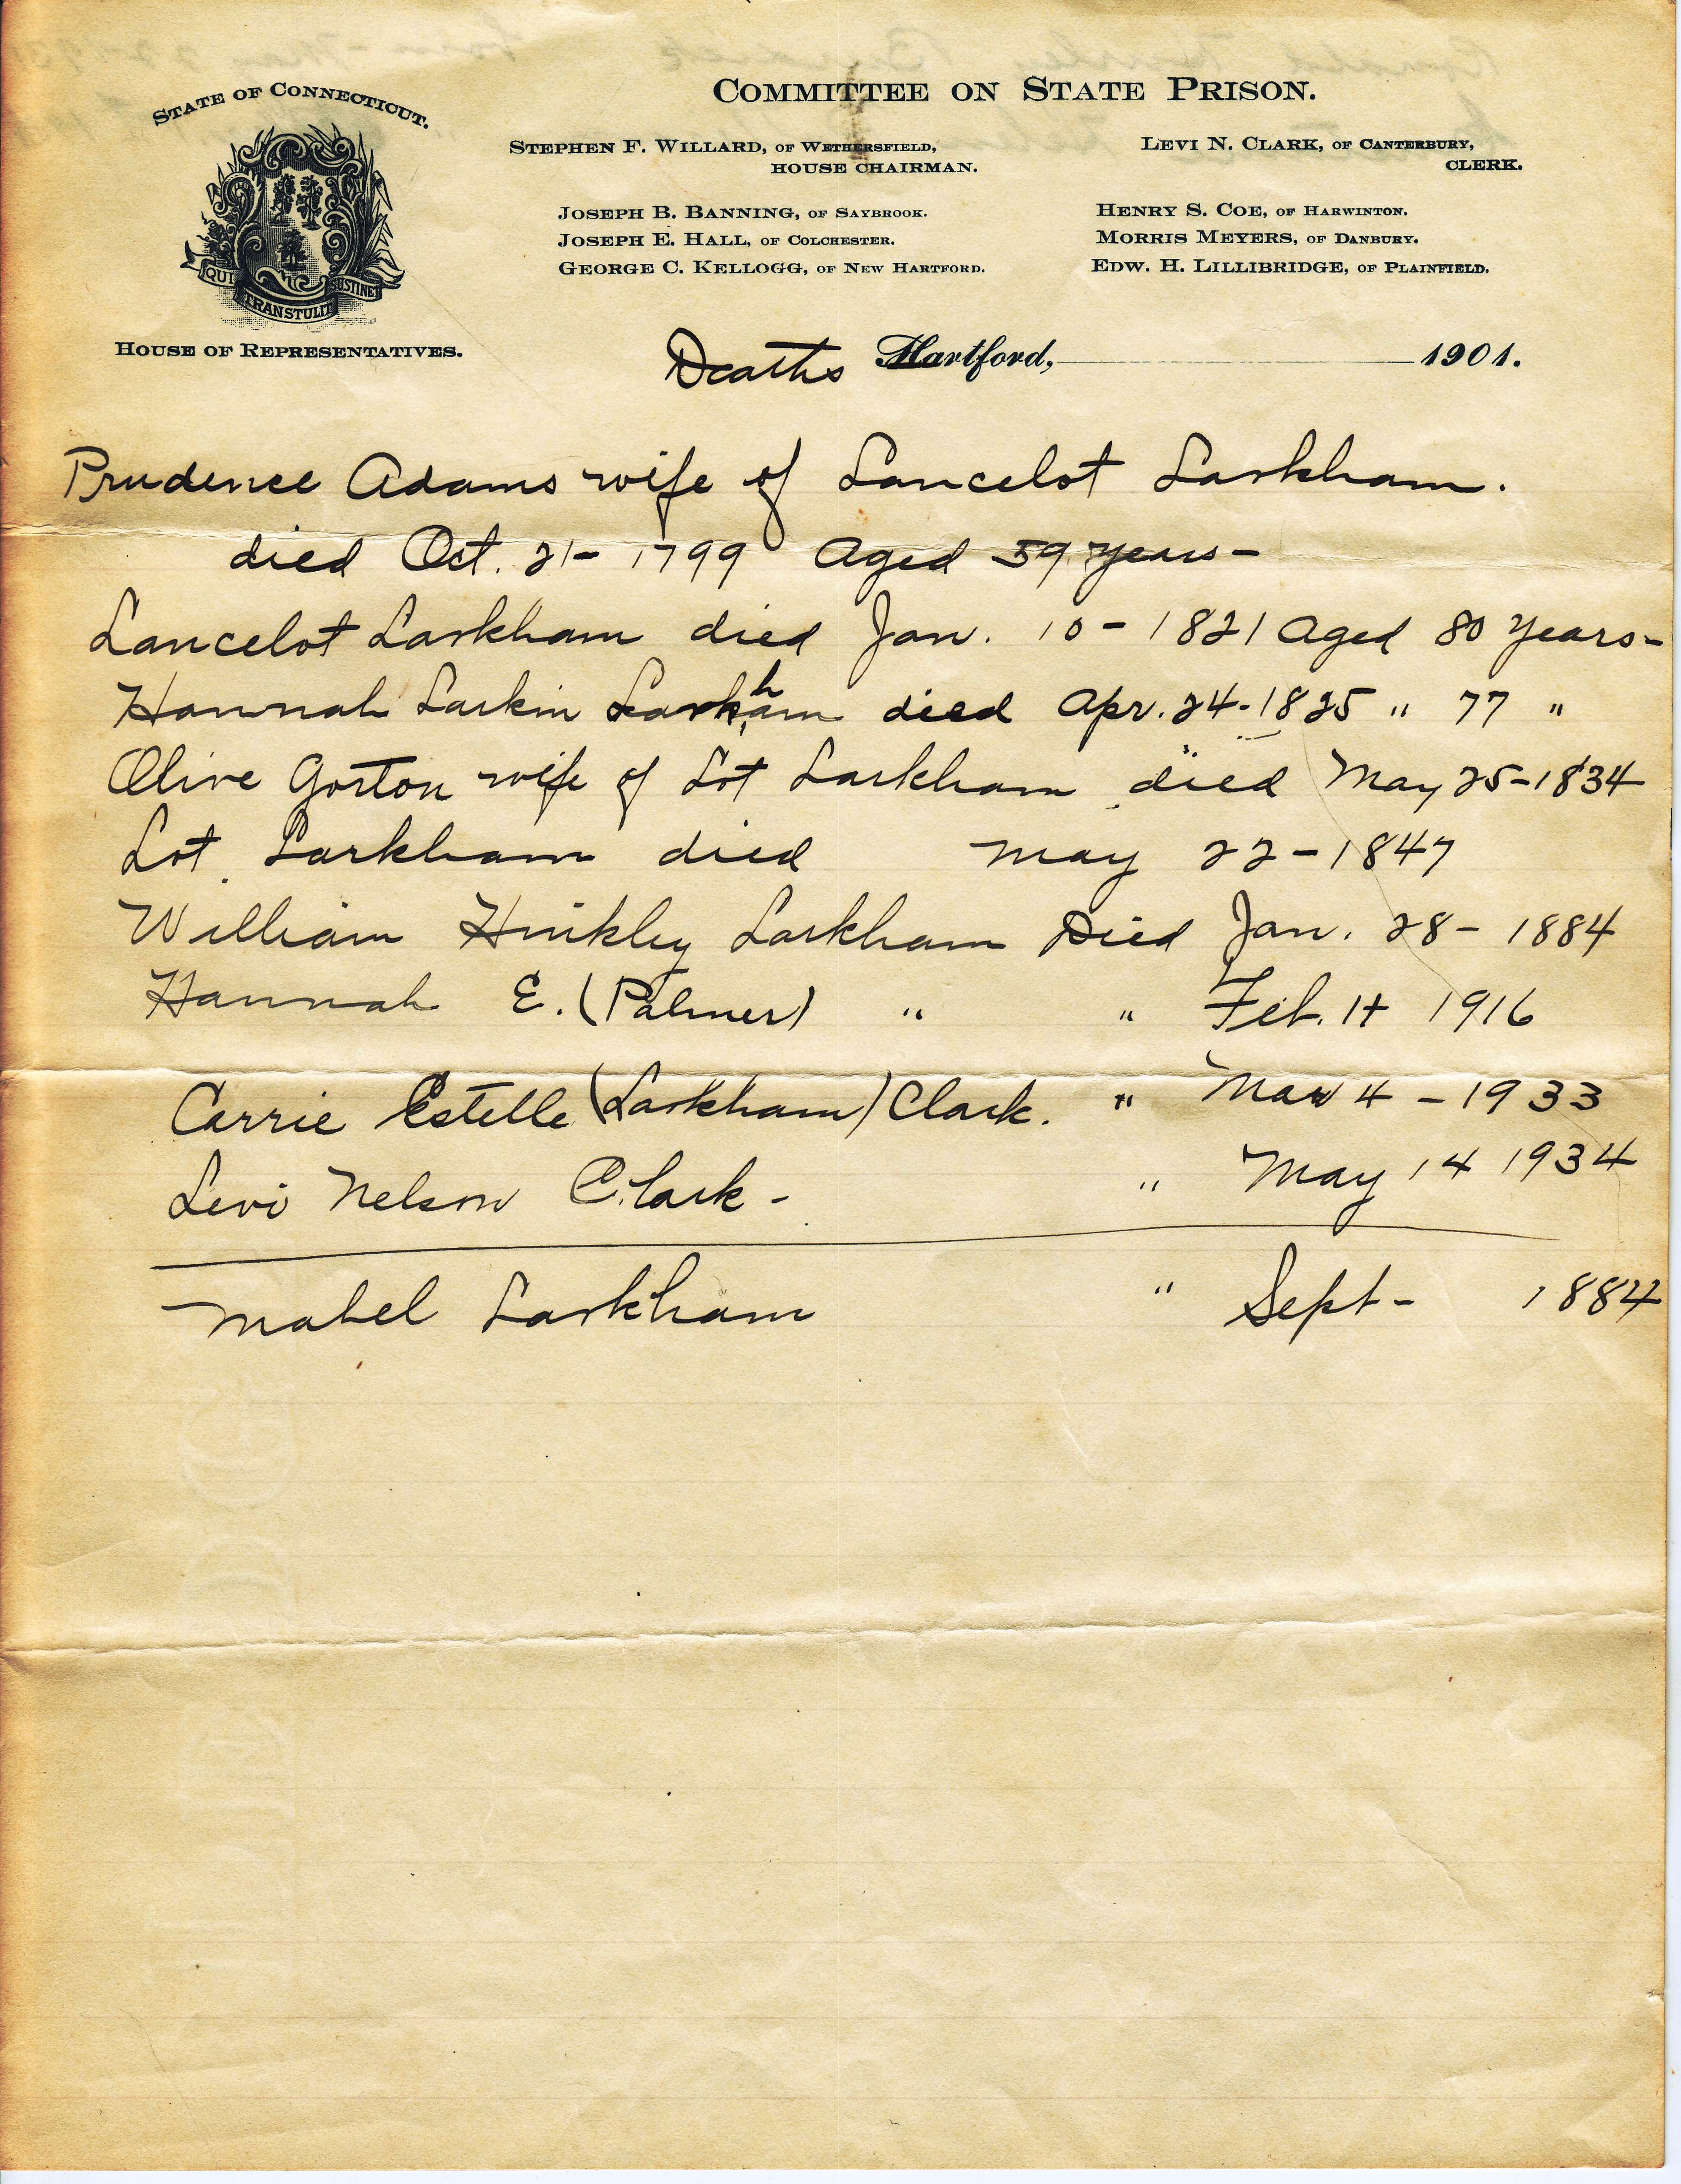 STATE OF CONNECTICUT.
QUI TRANSTULIT SUSTINET
HOUSE OF REPRESENTATIVES.
COMMITTEE ON STATE PRISON.
STEPHEN F. WILLARD, OF WETHERSFIELD,
HOUSE CHAIRMAN.
LEVI N. CLARK, OF CANTERBURY,
CLERK.
JOSEPH B. BANNING, OF SAYBROOK.
JOSEPH E. HALL, OF COLCHESTER.
GEORGE C. KELLOGG, OF NEW HARTFORD.
HENRY S. COE, OF HARWINTON.
MORRIS MEYERS, OF DANBURY.
EDW. H. LILLIBRIDGE, OF PLAINFIELD.
Deaths Hartford, 1901.
Prudence Adams wife of Lancelot Larkham.
died Oct. 21- 1799 Aged 59 years-
Lancelot Larkham died Jan. 10 - 1821 Aged 80 years-
Hannah Larkin Larkham died Apr. 24-1825 " 77 "
Olive Gorton wife of Lot Larkham died May 25-1834
Lot Larkham died May 22-1847
William Hinkley Larkham Died Jan. 28- 1884
Hannah E. (Palmer) " " Feb. 14 1916
Carrie Estelle (Larkham) Clark. " Mar 4 - 1933
Levi Nelson Clark- " May 14 1934
Mabel Larkham " Sept- 1884